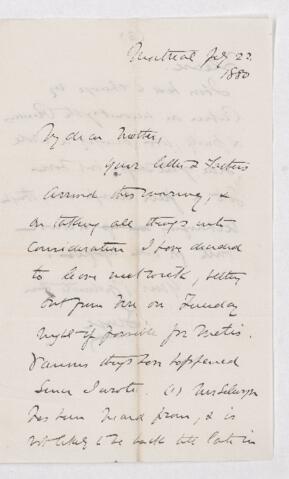 Montreal July 23.
1880
My dear Mother,
Your letter & Father's
arrived this evening, &
on taking all things into
consideration I have decided
to leave next week, setting
out from here on Tuesday
night if possible for Metis.
Various things have happened
since I wrote. (1) Mr Selwyn
has been heard from, & is
not likely to be back till late in